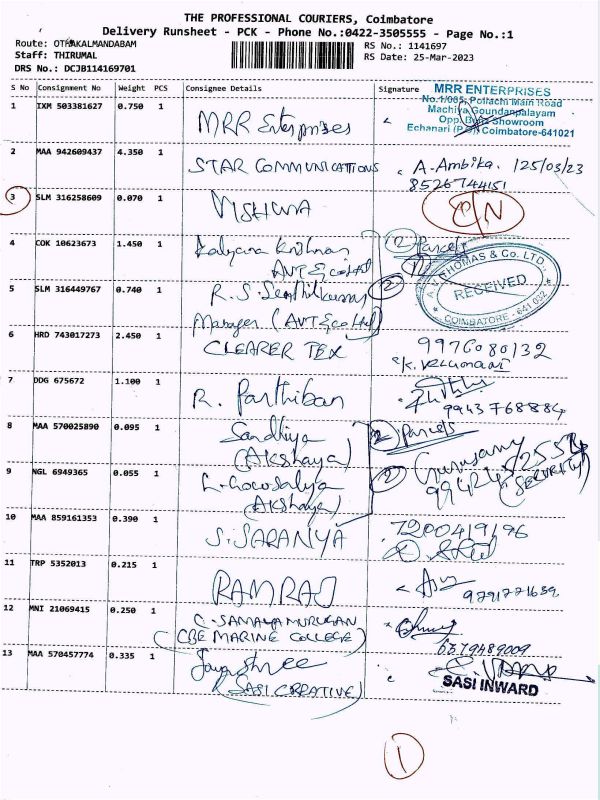 THE PROFESSIONAL COURIERS, Coimbatore
Delivery Runsheet - PCK - Phone No.:0422-3505555 - Page No.:1
Route: OTHAKALMANDABAM
RS No.: 1141697
Staff: THIRUMAL
RS Date: 25-Mar-2023
DRS No.: DCJB114169701
S No Consignment No Weight PCS Consignee Details Signature
MRR ENTERPRISES
Pollachi Main Road
Machiya Goundanpalayam
Opp. Showroom
Echanari Coimbatore-641021
1 IXM 503381627 0.750 1 MRR Enterprises
2 MAA 942609437 4.350 1 STAR COMMUNICATIONS A. Ambika. 125/03/23
8526744151
3 SLM 316258609 0.070 1 VISHWA
4 COK 10623673 1.450 1 Kalyana Krishnan 2 Parcels
A.V. THOMAS & Co. LTD.,
RECEIVED
COIMBATORE - 641 032
5 SLM 316449767 0.740 1 R.S. Senthilkumar 2
Manager
6 HRD 743017273 2.450 1 CLEARER TEX 9976080132
7 DDG 675672 1.100 1 R. Parthiban
9943768884
8 MAA 570025890 0.095 1 Sandhiya 2 Parcels
(Akshaya)
9 NGL 6949365 0.055 1 2 Gurusamy
(Akshaya) (SECURITY)
10 MAA 859161353 0.390 1 S. SARANYA 7200419196
11 TRP 5352013 0.215 1 RAMRAJ
12 MNI 21069415 0.250 1 C. SAMAYAMURUGAN
(CBE MARINE COLLEGE) 6379489009
13 MAA 570457774 0.335 1 Jayashree
(SASI CREATIVE) SASI INWARD
1